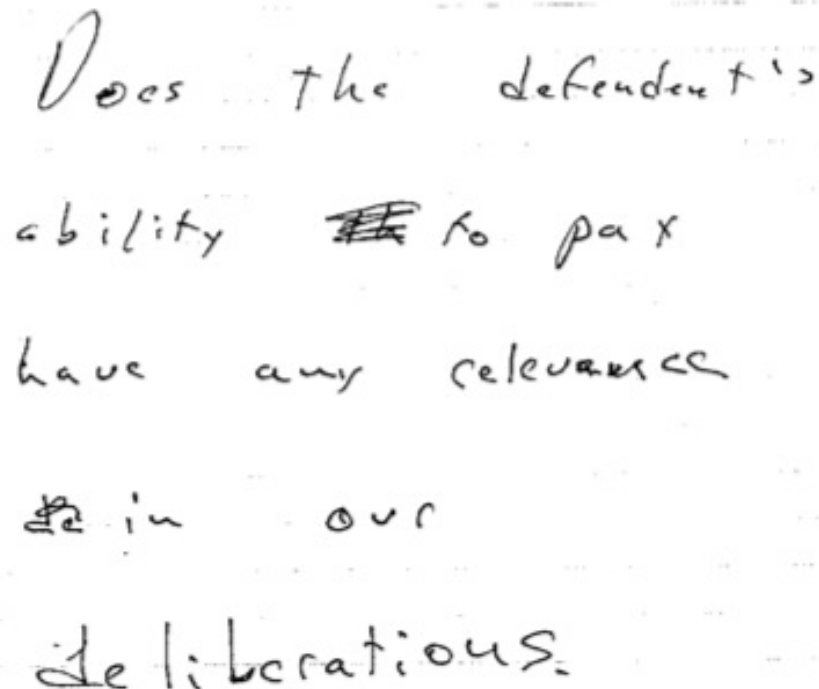 Does the defendent's
ability to pay
have any relevance
in our
deliberations.